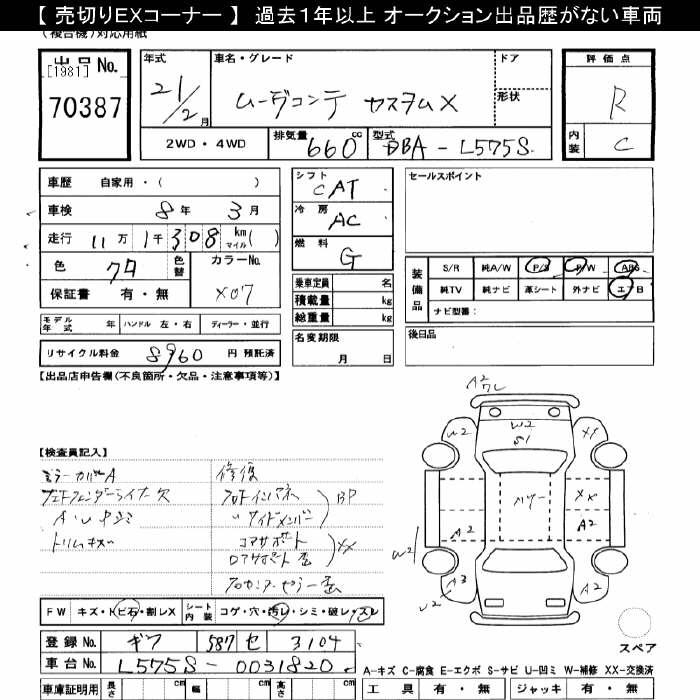 【 売切りEXコーナー 】 過去1年以上 オークション出品歴がない車両
(複合機)対応用紙
出品 No.
[1981]
70387
年式
21/2月
車名・グレード
ムーヴコンテ カスタムX
ドア
形状
2WD・4WD
排気量
660cc
型式
DBA-L575S
評価点
R
内装
C
車歴 自家用・( )
車検 8年 3月
走行 11万 1千 308 km マイル( )
色 クロ
色替
カラーNo.
X07
保証書 有・無
モデル年式 年 ハンドル 左・右 ディーラー・並行
リサイクル料金 8960 円 預託済
シフト
CAT
冷房
AC
燃料
G
乗車定員 名
積載量 kg
総重量 kg
名変期限
月 日
セールスポイント
装備品
S/R 純A/W P/S P/W ABS
純TV 純ナビ 革シート 外ナビ エアB
ナビ型番:
後日品
【出品店申告欄(不良箇所・欠品・注意事項等)】
【検査員記入】
ミラーカバーA
フェンダーライナー欠
A・U
トリムキズ
修復
フロントインパネ
〃 サイドメンバー
BP
コアサポート
ロアサポート歪
XX
A2
W2
W2
S1
XX
XX
A2
A2
W2
A3
U2
A2
スペア
FW キズ・トビ石・割レX
シート内装 コゲ・穴・汚レ・シミ・破レ・スレ
登録 No. ギフ 587 セ 3104
車台 No. L575S-0031820
A-キズ C-腐食 E-エクボ S-サビ U-凹ミ W-補修 XX-交換済
車庫証明用 長さ cm 幅 cm 高さ cm
工具 有・無 ジャッキ 有・無